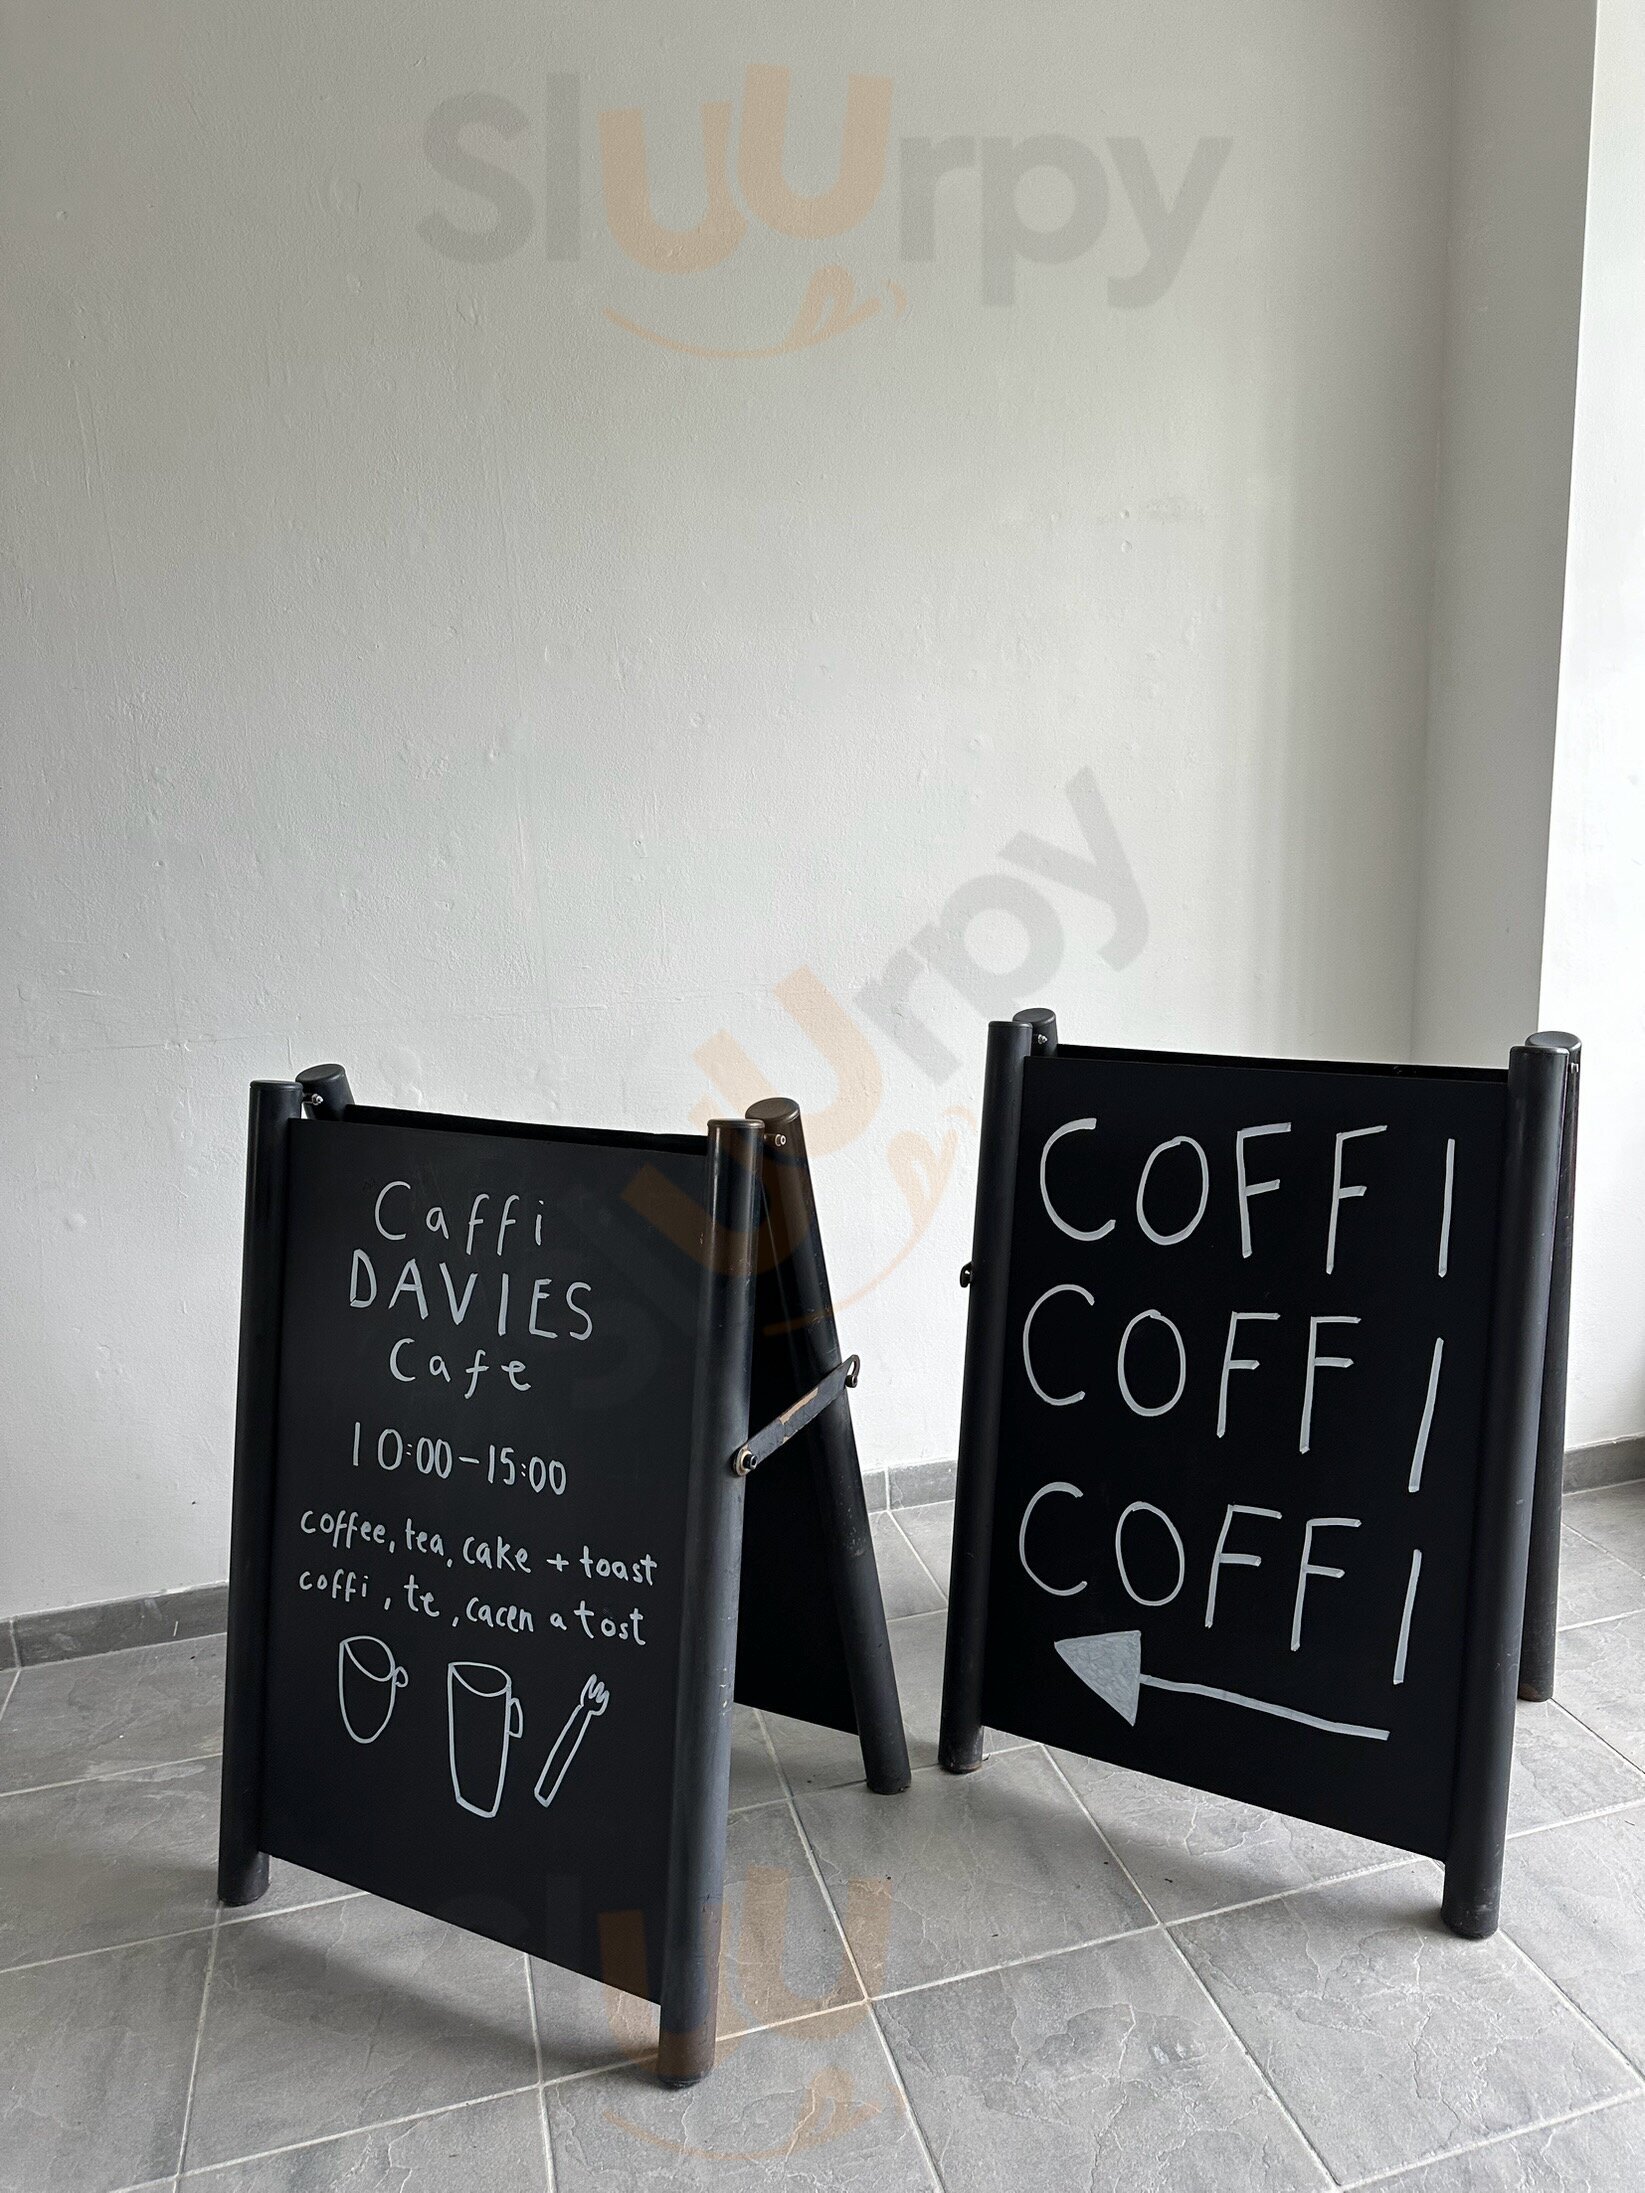 Sluurpy
Sluurpy
Caffi
DAVIES
Cafe
10:00-15:00
coffee, tea, cake + toast
coffi, te, cacen a tost
COFFI
COFFI
COFFI